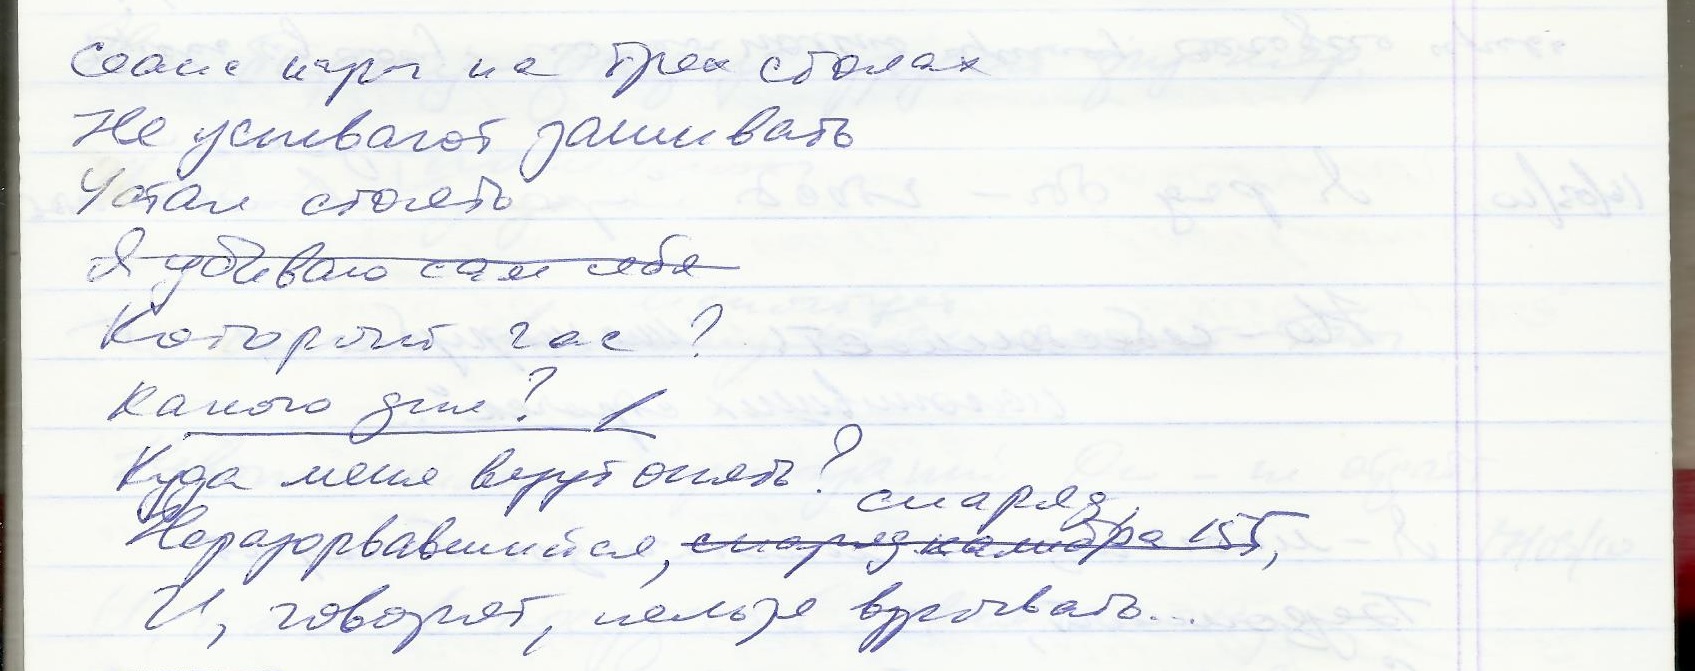 Сеанс игры на трех столах
Не успевают зашивать
Устал стоять
Я убиваю сам себя
Который час?
Какого дня?
Куда меня везут опять?
снаряд,
Неразорвавшийся, снаряд калибра 155,
И, говорят, нельзя взрывать...